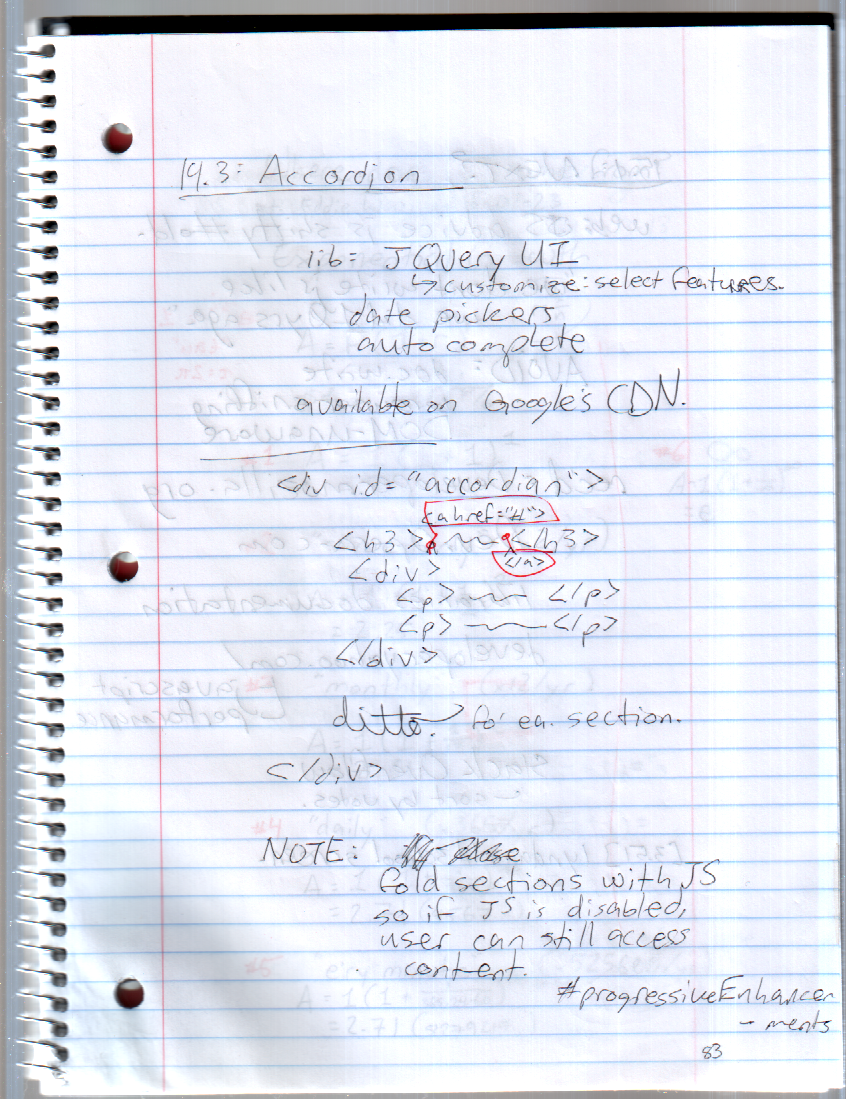 14.3: Accordion
lib= JQuery UI
↳ customize: select features.
date pickers
auto complete
available on Google's CDN.
<div id="accordian">
<a href="#">
<h3> ~~ </h3>
</a>
<div>
<p> ~~ </p>
<p> ~~ </p>
</div>
ditto. for ea. section.
</div>
NOTE:
fold sections with JS
so if JS is disabled,
user can still access
content.
#progressiveEnhancer
-ments
83